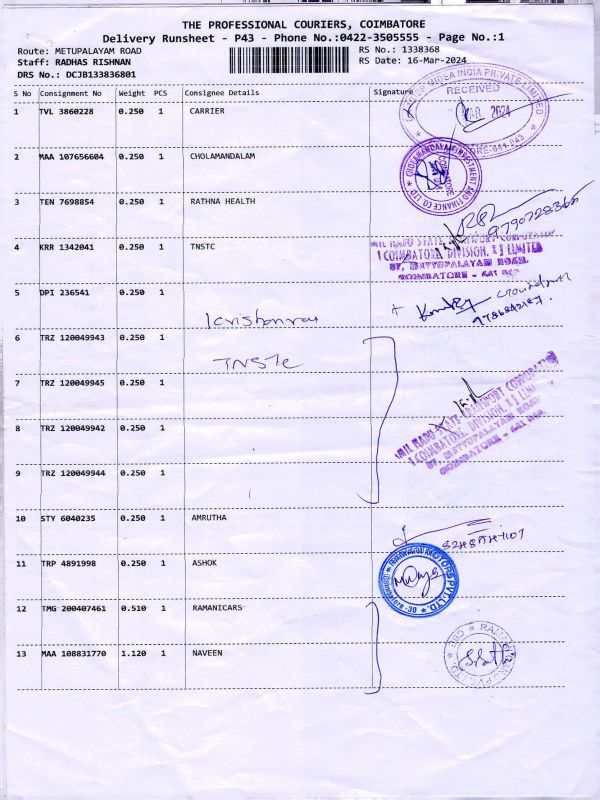 THE PROFESSIONAL COURIERS, COIMBATORE
Delivery Runsheet - P43 - Phone No.:0422-3505555 - Page No.:1
Route: METUPALAYAM ROAD
RS No.: 1338368
Staff: RADHAS RISHNAN
RS Date: 16-Mar-2024
DRS No.: DCJB133836801
S No Consignment No Weight PCS Consignee Details Signature
1 TVL 3860228 0.250 1 CARRIER
MIDEA INDIA PRIVATE LIMITED
RECEIVED
MAR 2024
2 MAA 107656604 0.250 1 CHOLAMANDALAM
CHOLAMANDALAM INVESTMENT AND FINANCE CO LTD
COIMBATORE
3 TEN 7698854 0.250 1 RATHNA HEALTH
9790728366
4 KRR 1342041 0.250 1 TNSTC
TAMIL NADU STATE TRANSPORT CORPORATION
(COIMBATORE DIVISION. I) LIMITED
37, METTUPALAYAM ROAD,
COIMBATORE - 641 043
5 DPI 236541 0.250 1
Krishonraj
6 TRZ 120049943 0.250 1
TNSTC
7 TRZ 120049945 0.250 1
TAMIL NADU STATE TRANSPORT CORPORATION
(COIMBATORE DIVISION. I) LIMITED
37, METTUPALAYAM ROAD
COIMBATORE - 641 043
8 TRZ 120049942 0.250 1
9 TRZ 120049944 0.250 1
10 STY 6040235 0.250 1 AMRUTHA
11 TRP 4891998 0.250 1 ASHOK
MOTORS PVT. LTD.
12 TMG 200407461 0.510 1 RAMANICARS
13 MAA 108831770 1.120 1 NAVEEN